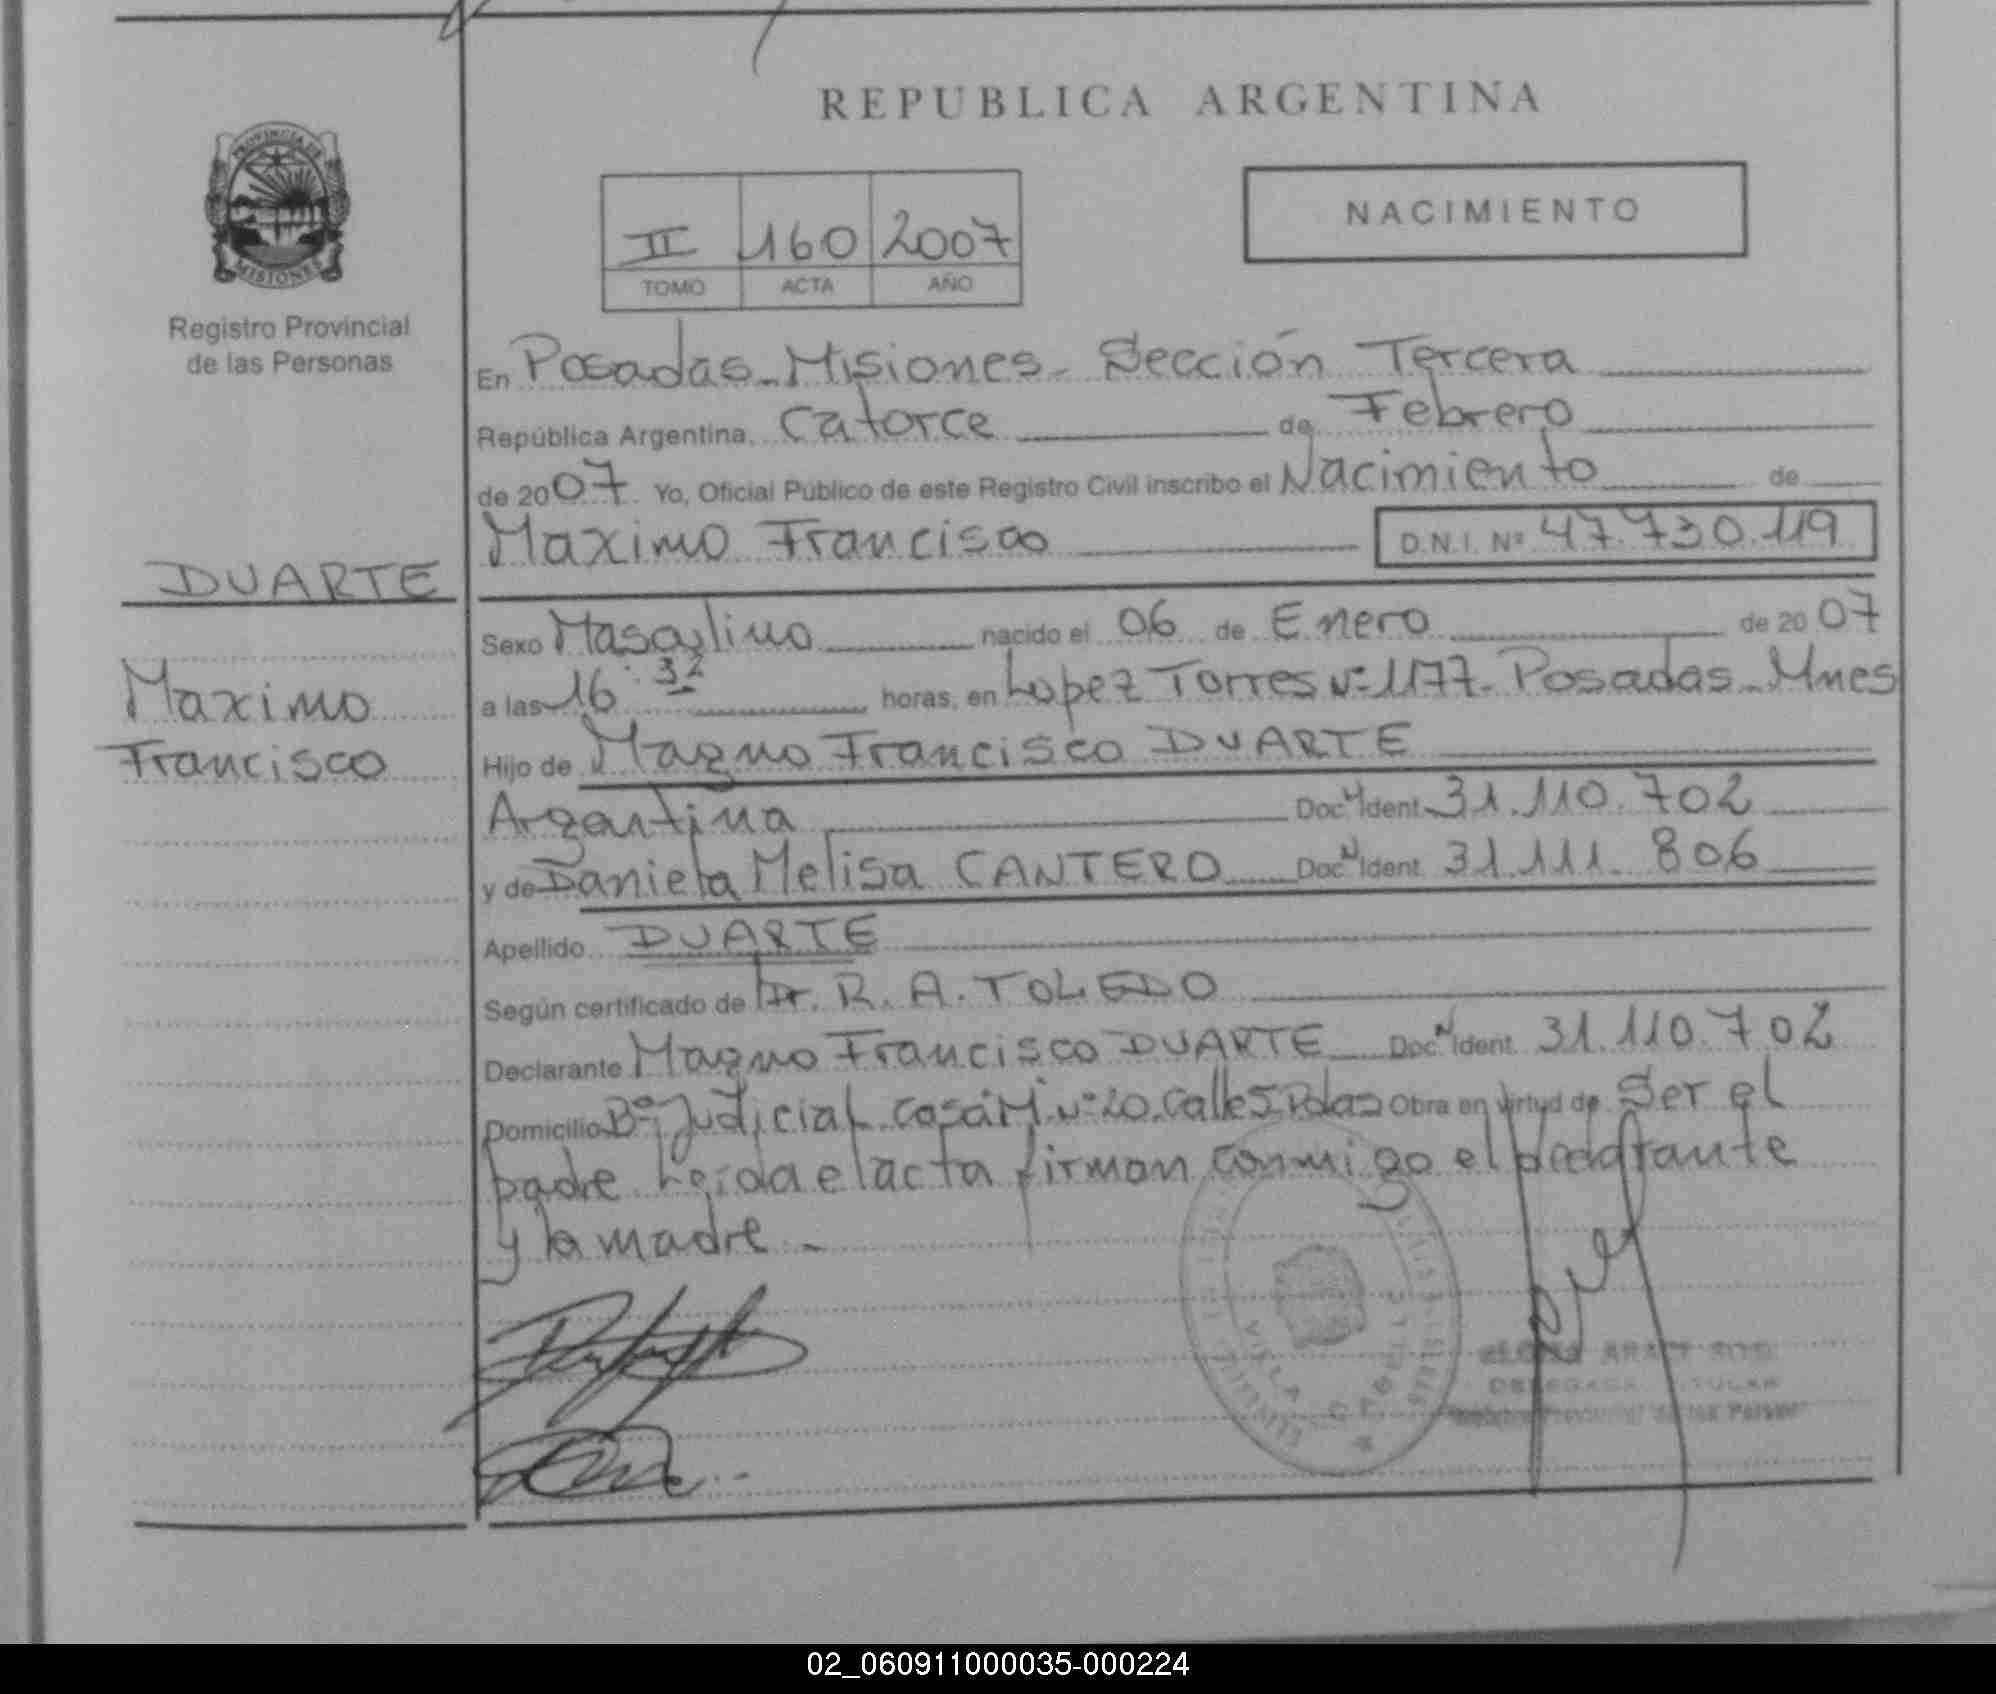 REPUBLICA ARGENTINA
PROVINCIA DE
MISIONES
Registro Provincial
de las Personas
II 160 2007
TOMO ACTA AÑO
NACIMIENTO
En Posadas - Misiones - Sección Tercera
República Argentina, Catorce de Febrero
de 2007. Yo, Oficial Público de este Registro Civil inscribo el Nacimiento de
Maximo Francisco D.N.I. Nº 47.730.119
DUARTE
Maximo
Francisco
Sexo Masculino nacido el 06 de Enero de 2007
a las 16:32 horas, en Lopez Torres Nº 1177 - Posadas - Mnes
Hijo de Magno Francisco DUARTE
Argentina Doc. Ident. 31.110.702
y de Daniela Melisa CANTERO Doc. Ident. 31.111.806
Apellido DUARTE
Según certificado de Dr. R. A. TOLEDO
Declarante Magno Francisco DUARTE Doc. Ident. 31.110.702
Domicilio Bº Judicial casa Nº 20. Calle Pdas Obra en virtud de Ser el
padre Leída el acta firman conmigo el declarante
y la madre -
DELEGADA TITULAR
02_060911000035-000224